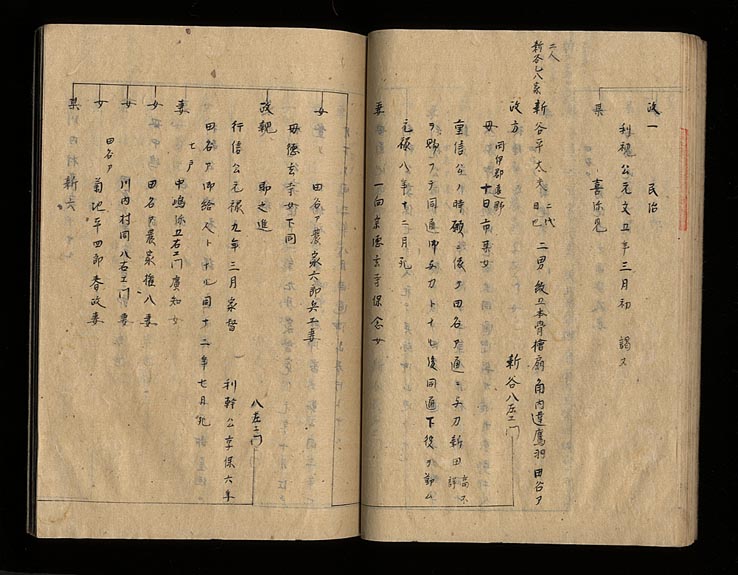 政一 民治
利視公元文五年三月初謁ス
某 喜弥見
二人
新谷七八家
新谷平太夫 二代目 二男 紋五本骨檜扇 角内違鷹羽 田名ア
新谷八左エ門
政方
母 同伊郡遠野 十日市某女
重信公ノ時 願 後 田名ア通 新田 高不詳
ヲ賜 同通御与力トナル 後同通下役ヲ勤ム
元禄八年十二月死
妻 一向宗徳玄寺保念女
女 田名ア農家六郎兵エ妻
母徳玄寺女下同
政親 即之進 八左エ門
行信公元禄九年三月家督 利幹公享保六年
田名ア御給人トナル 同十二年七月死
七戸
妻 中嶋弥五右エ門廣知女
女 田名ア農家権八妻
女 川内村同八右エ門妻
田名ア
女 菊池平四郎春政妻
某 新六